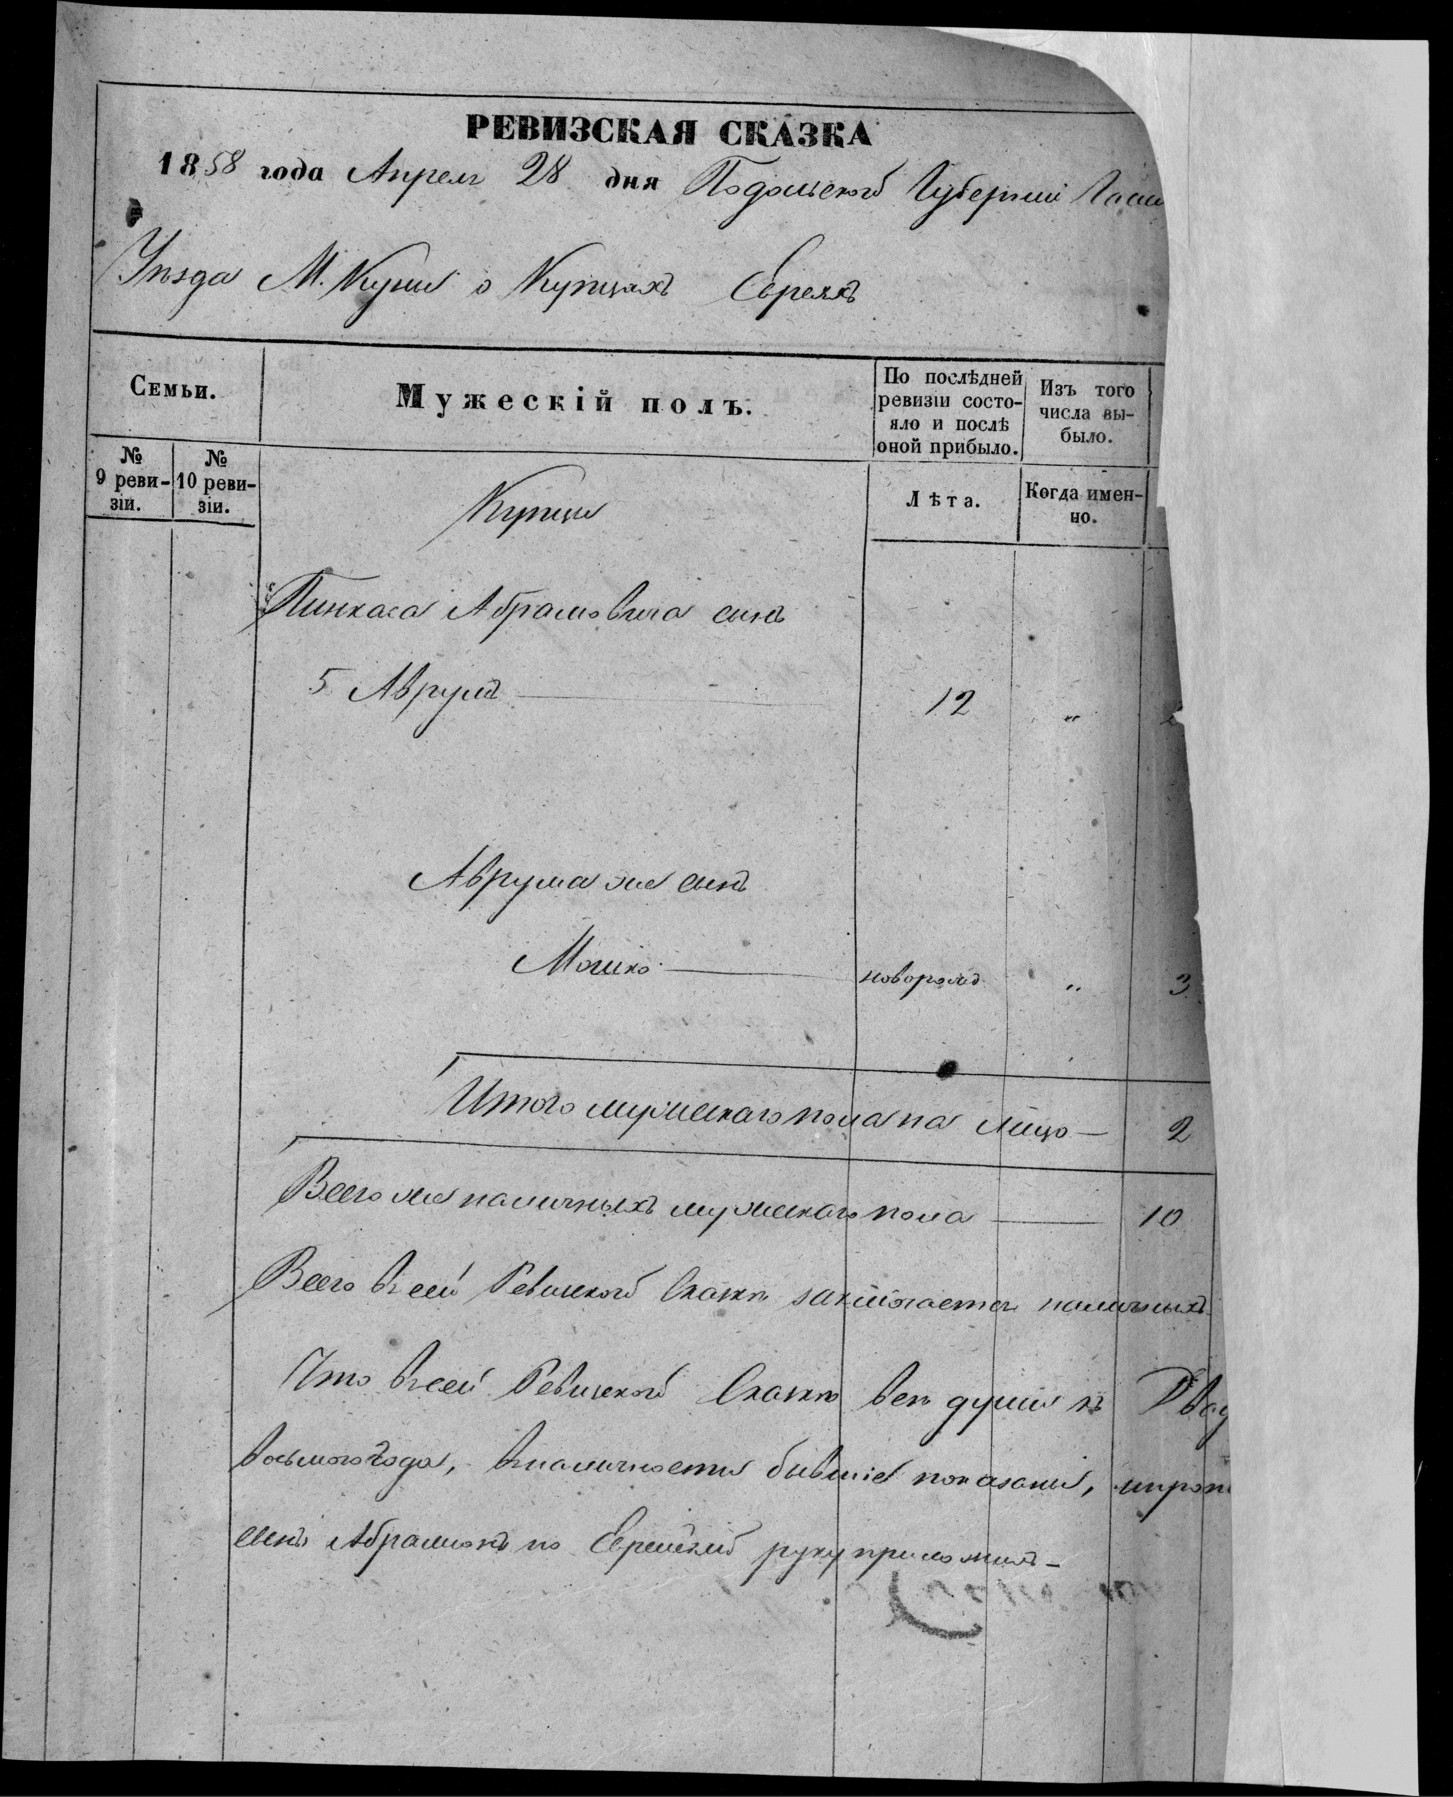 РЕВИЗСКАЯ СКАЗКА
1858 года Апреля 28 дня Подольской Губерніи
Уѣзда М. Куны о Купцахъ Евреяхъ
Семьи.
Мужескій полъ.
По послѣдней ревизіи состо-
яло и послѣ
оной прибыло.
Изъ того
числа вы-
было.
№
9 реви-
зіи.
№
10 реви-
зіи.
Лѣта.
Когда имен-
но.
Купцы
Пинхаса Абрамовича сынъ
5 Аврумъ 12 „
Аврума же сынъ
Мошко новорожд „ 3
Итого мужескаго пола на лицо 2
Всего же наличныхъ мужескаго пола 10
Всего в сей Ревизской Сказкѣ заключается наличныхъ
Что в сей Ревизской Сказкѣ всѣ души къ Двад
восьмого года, вналичности бывшіе показаны,
сынъ Абрамовъ по Еврейскій руку приложилъ